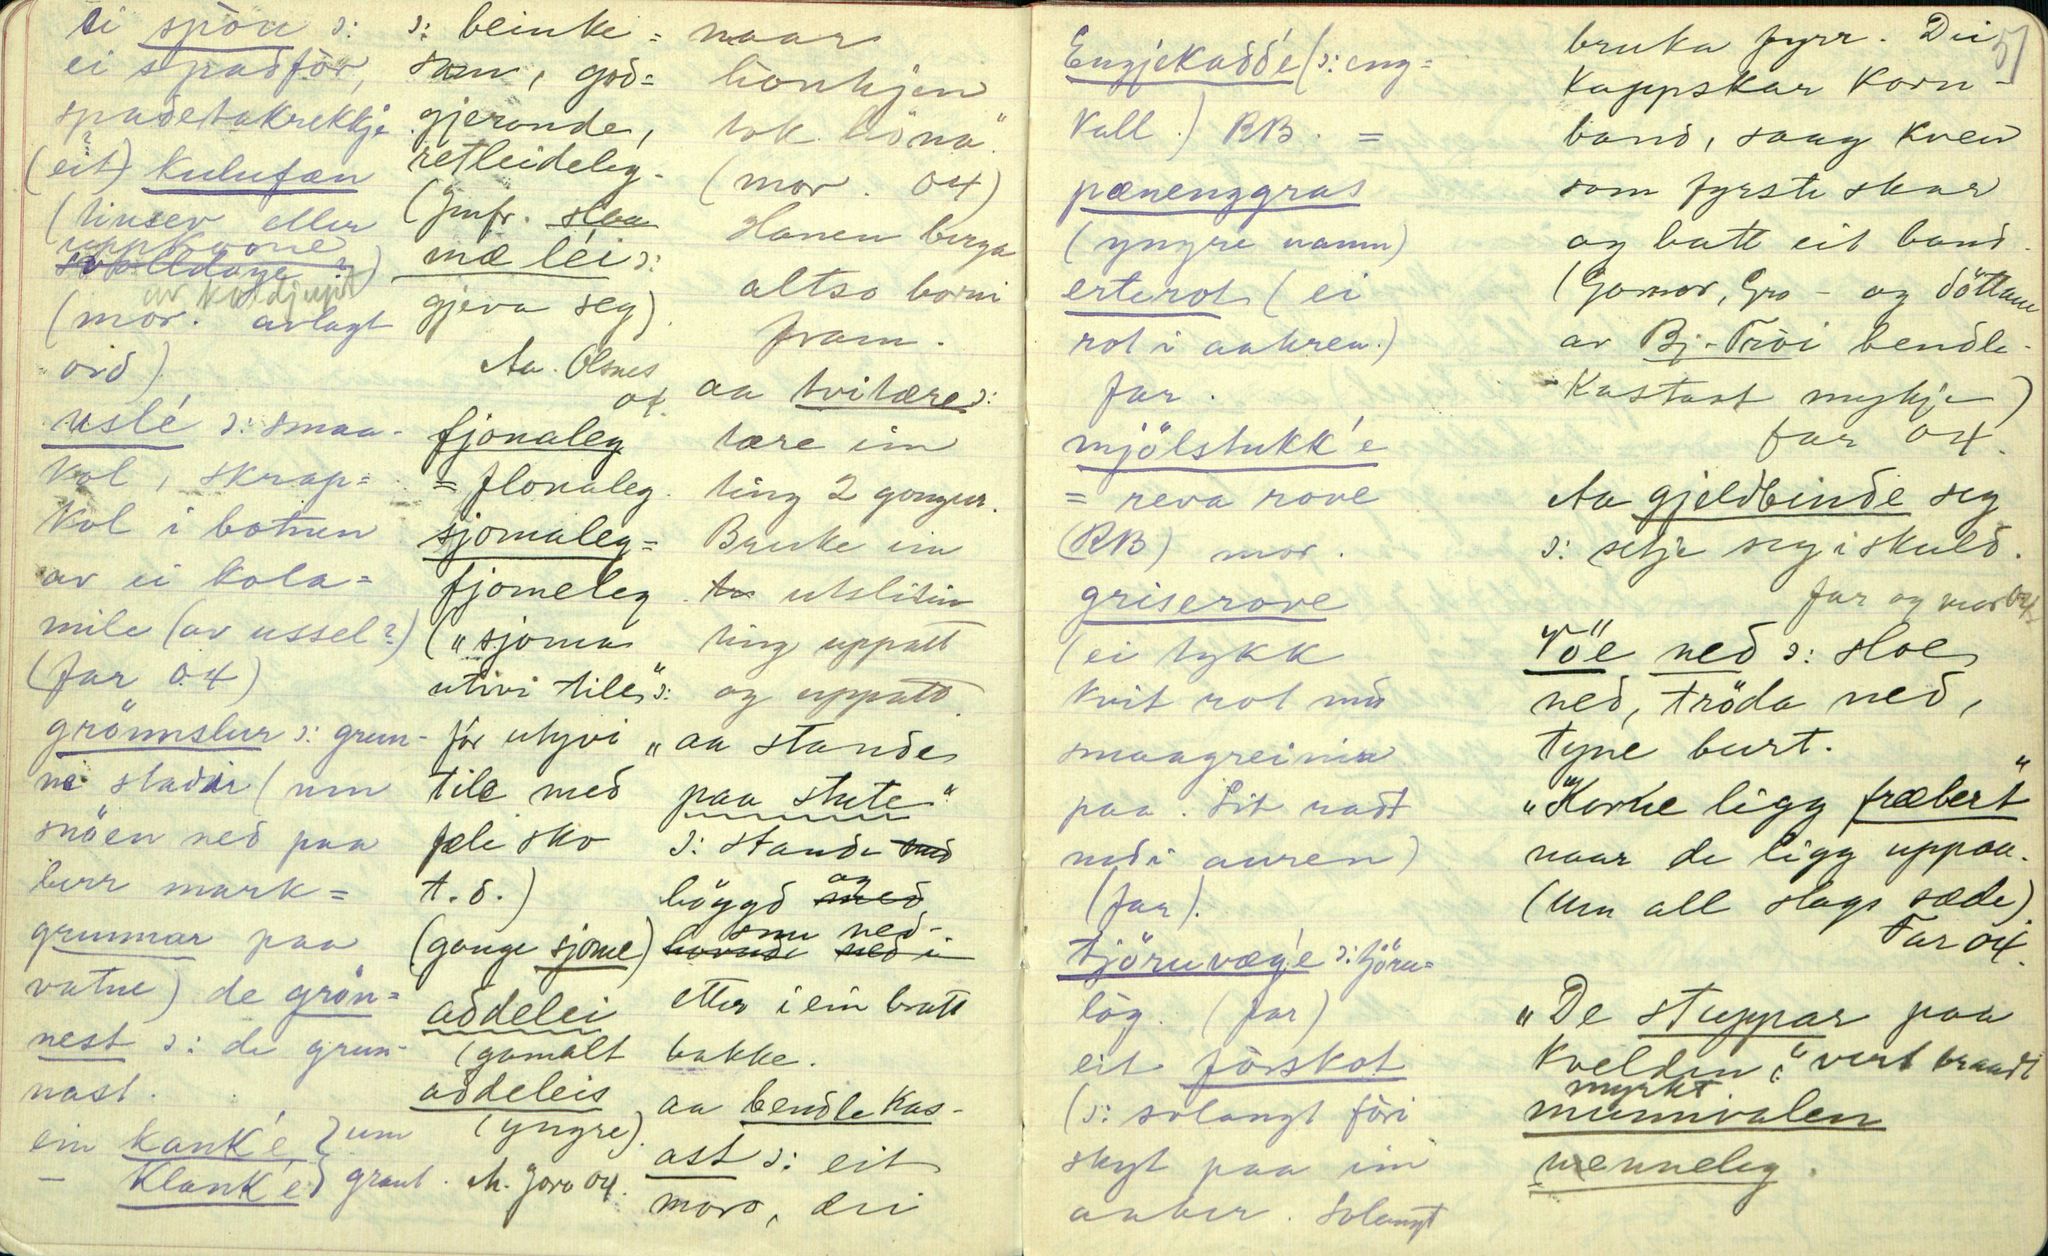 ei spòn ɔ:
ei spadfòr,
spadetakrekkje
(eit) kulufæn
(tinser eller
uppkaane
av kaldjupt
(mor. avlagt
ord)
uslé ɔ: smaa-
kol, skrap=
kol i botnen
av ei kola=
mile (av ussel?)
(far 04)
grönnslur ɔ: grun-
ne stadir (um
snöen ned paa
berr mark =
grunnar paa
vatne) de grön=
nest ɔ: de grun-
nast.
ein kank'e } um
- klank'e } graut.
ɔ: beinke=
sam, god=
gjerande,
retleideleg.
(jmfr. slba
mæ léi ɔ:
gjeva seg)
Aa. Olsnes
04.
fjonaleg
= flonaleg.
sjomaleg=
fjomeleg
(„sjoma
utivi tile" ɔ:
fór utyvi
tile med
fæle sko
t.d.)
(gange sjome)
addelei
(gamalt
addeleis
(yngre).
M. Joro 04.
naar
bonkjen
tok böna".
(mor. 04)
Hanen berga
altso borni
fram.
aa tvitære ɔ:
tære ein
ting 2 gongur.
Bruke ein
utslitin
ting uppatt
og uppatt.
„aa stande
paa stute"
ɔ: stande med
böygd og
med
snu ned-
hovude ned i
etter i ein bratt
bakke.
aa bendlekas-
ast ɔ: eit
moro, dei
Engjekadd'e (ɔ: eng=
kall.) RB. =
pænenggras
(yngre namn)
erterot (ei
rot i aakren.)
far.
mjölstukk'e
= reva rove
(RB) mor.
griserove
(ei tykk
kvit rot med
smaagreinir
paa. Sit radt
nedi auren)
(far).
tjöruvæg'e ɔ: tjöru=
lög. (far)
eit förskot
(ɔ: solangt föri
skyt paa ein
anker. Solangt
51
bruka fyrr. Dei
kappskar korn-
band, saag kven
som fyrste skar
og batt eit band.
(Gamor, Gro - og döttane
av Bj-Tròi bendle-
kastast mykje)
far 04.
Aa gjeldbinde seg
ɔ: setje seg i skuld.
far og mor 04.
Töe ned ɔ: sloe
ned, tröda ned,
tyne burt.
„Korne ligg fræbert"
naar de ligg uppaa.
(um all slags sæde).
Far 04.
„De stuppar paa
kvelden": vert braadt
myrkt
munnvalen
venneleg.